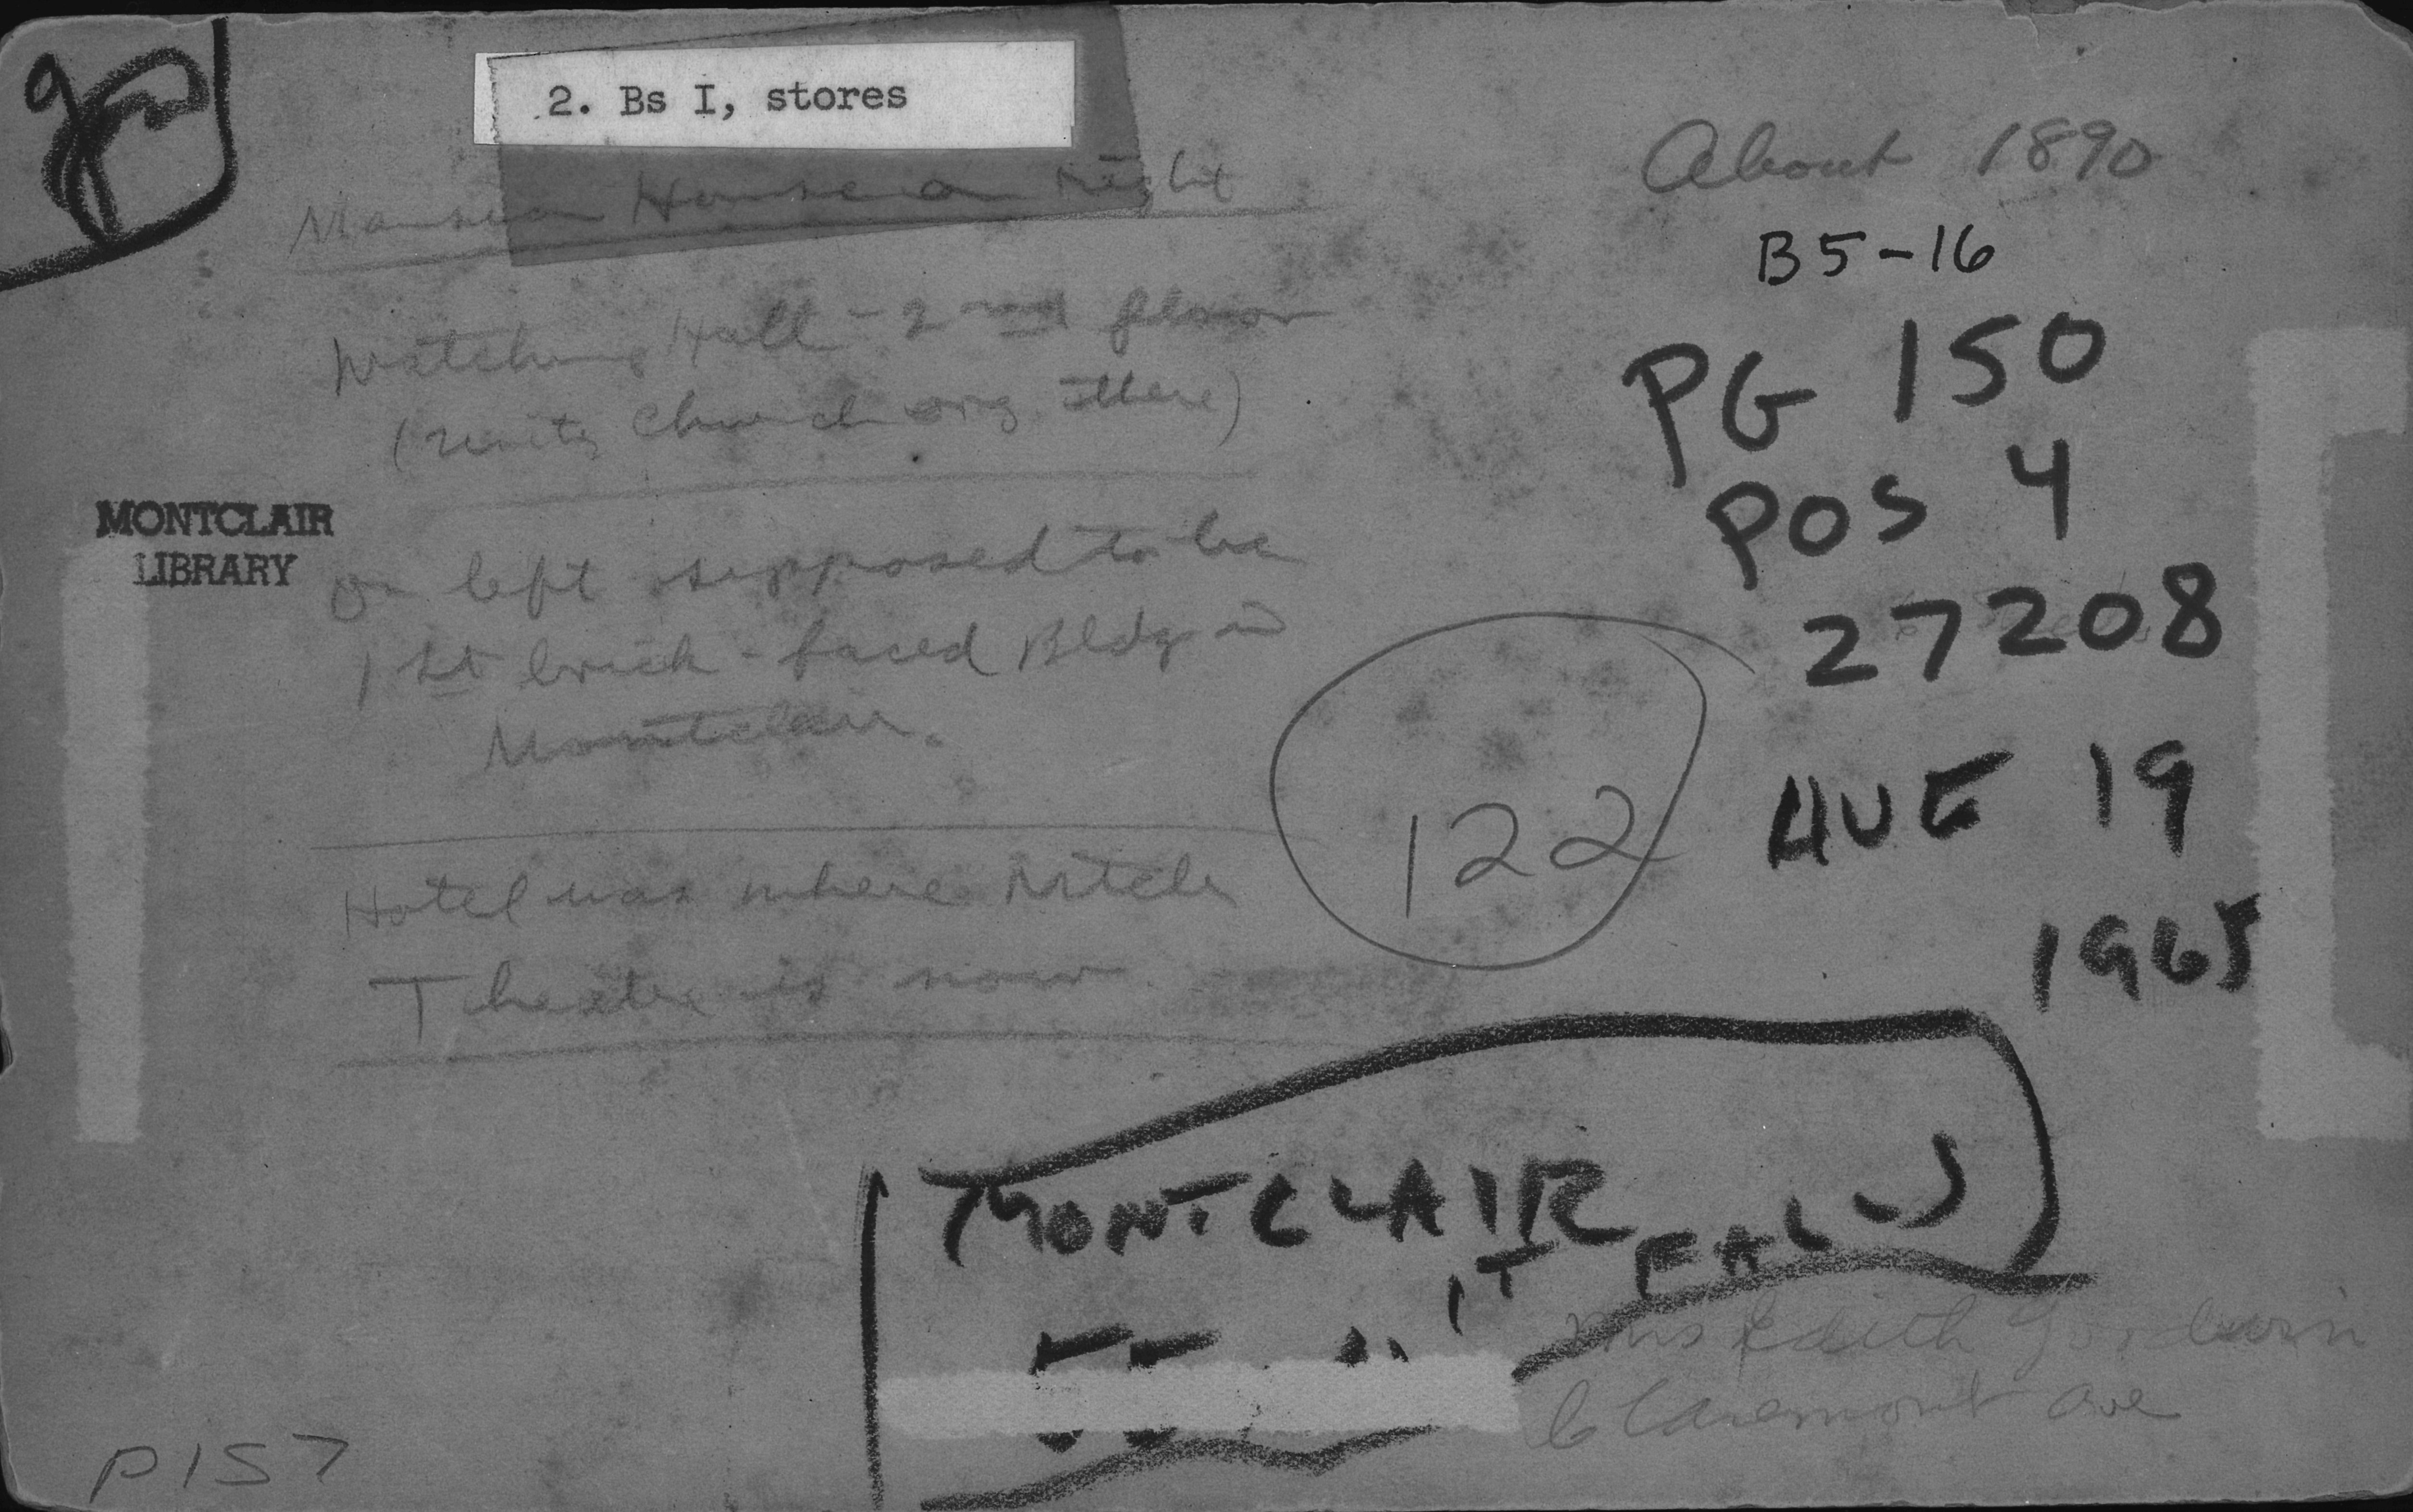 2. Bs I, stores
Mansion House on right
Watchung Hall - 2nd floor
(Unity Church org. there)
MONTCLAIR
LIBRARY
On left supposed to be
1st brick-faced Bldg in
Montclair.
Hotel was where
Theatre is now
About 1890
B5-16
PG 150
POS 4
27208
AUG 19
1965
122
MONTCLAIR
Edith
Claremont Ave
P157